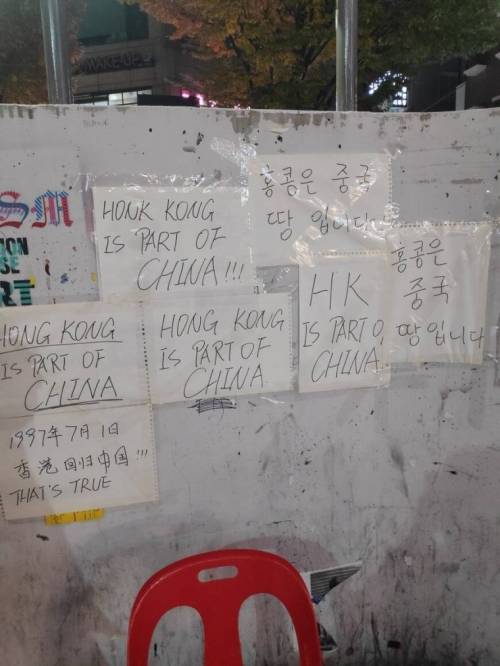 HONK KONG
IS PART OF
CHINA!!!
홍콩은 중국
땅 입니다
홍콩은
중국
땅입니다
HK
IS PART O
CHINA
HONG KONG
IS PART OF
CHINA
HONG KONG
IS PART OF
CHINA
1997年7月1日
香港回归中国!!!
THAT'S TRUE
SM